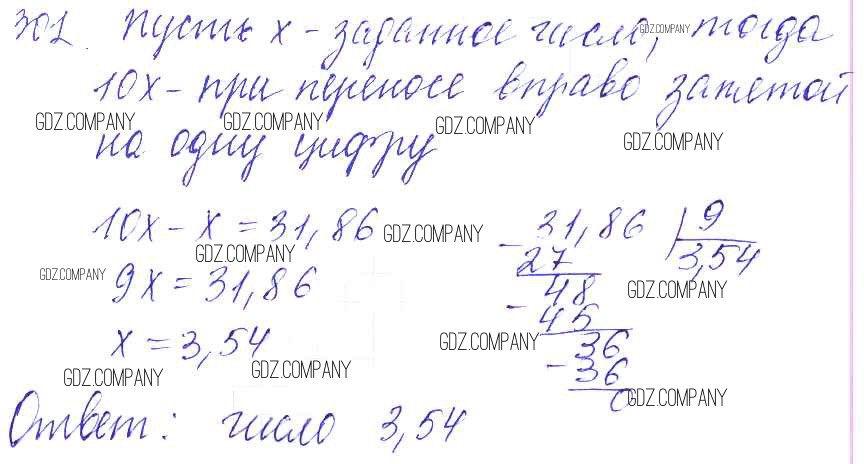 301. Пусть x - заданное число, тогда
10x - при переносе вправо запятой
на одну цифру
10x - x = 31,86
9x = 31,86
x = 3,54
- 31,86 | 9
27 3,54
48
- 45
36
- 36
0
Ответ: число 3,54
GDZ.COMPANY
GDZ.COMPANY
GDZ.COMPANY
GDZ.COMPANY
GDZ.COMPANY
GDZ.COMPANY
GDZ.COMPANY
GDZ.COMPANY
GDZ.COMPANY
GDZ.COMPANY
GDZ.COMPANY
GDZ.COMPANY
GDZ.COMPANY